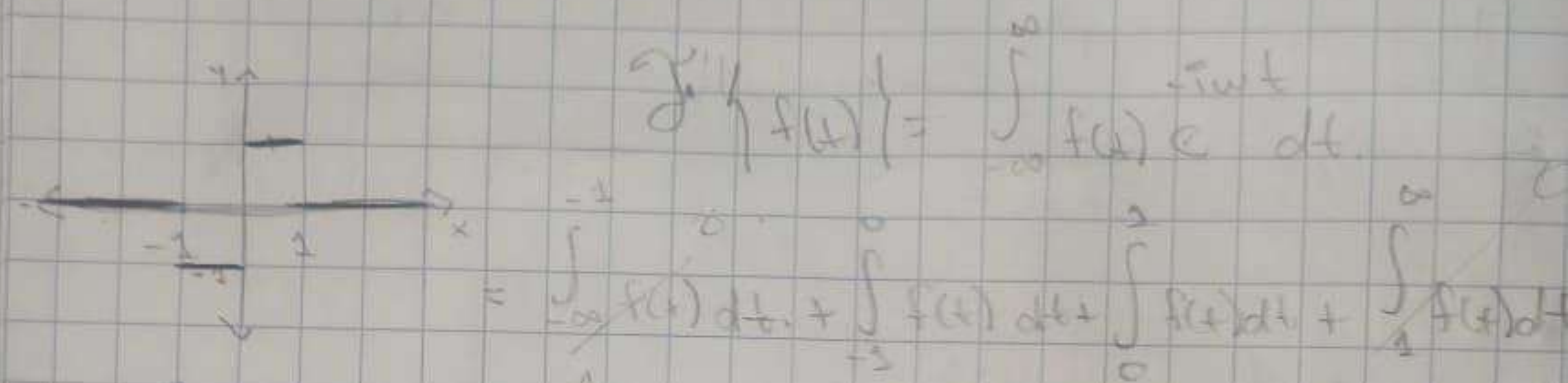 y
x
-1 1
-1
ℱ{f(t)} = ∫_{-∞}^{∞} f(t) e^{-iwt} dt.
= ∫_{-∞}^{-1} f(t) dt. + ∫_{-1}^{0} f(t) dt + ∫_{0}^{1} f(t) dt + ∫_{1}^{∞} f(t) dt
0